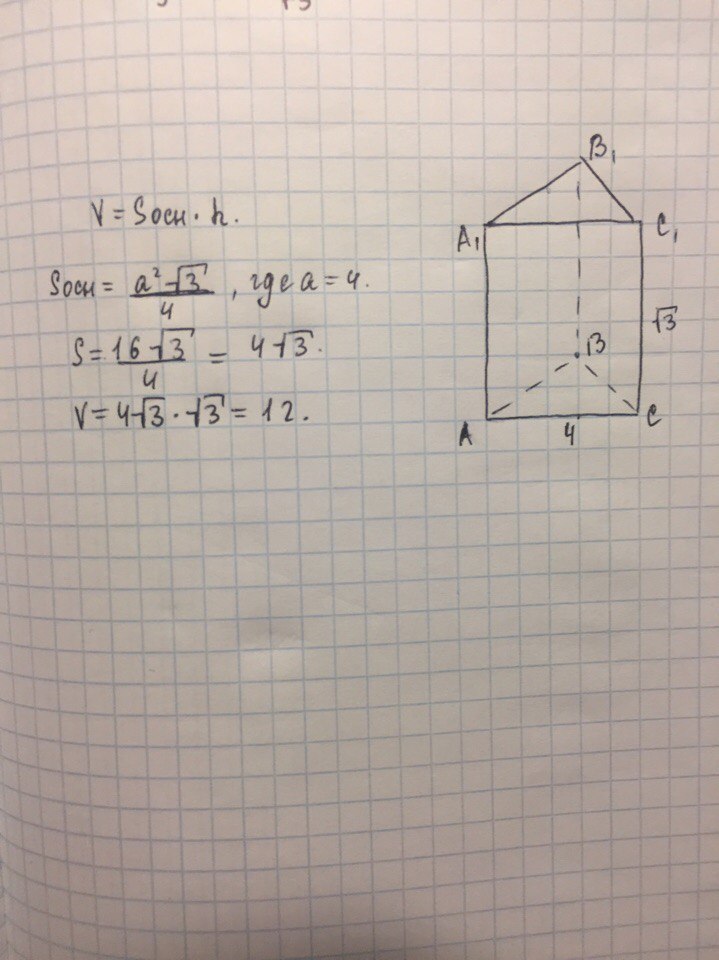 V = Sосн · h.
Sосн = a²√3 / 4 , где a = 4.
S = 16√3 / 4 = 4√3.
V = 4√3 · √3 = 12.
B₁
A₁
C₁
√3
B
A
C
4